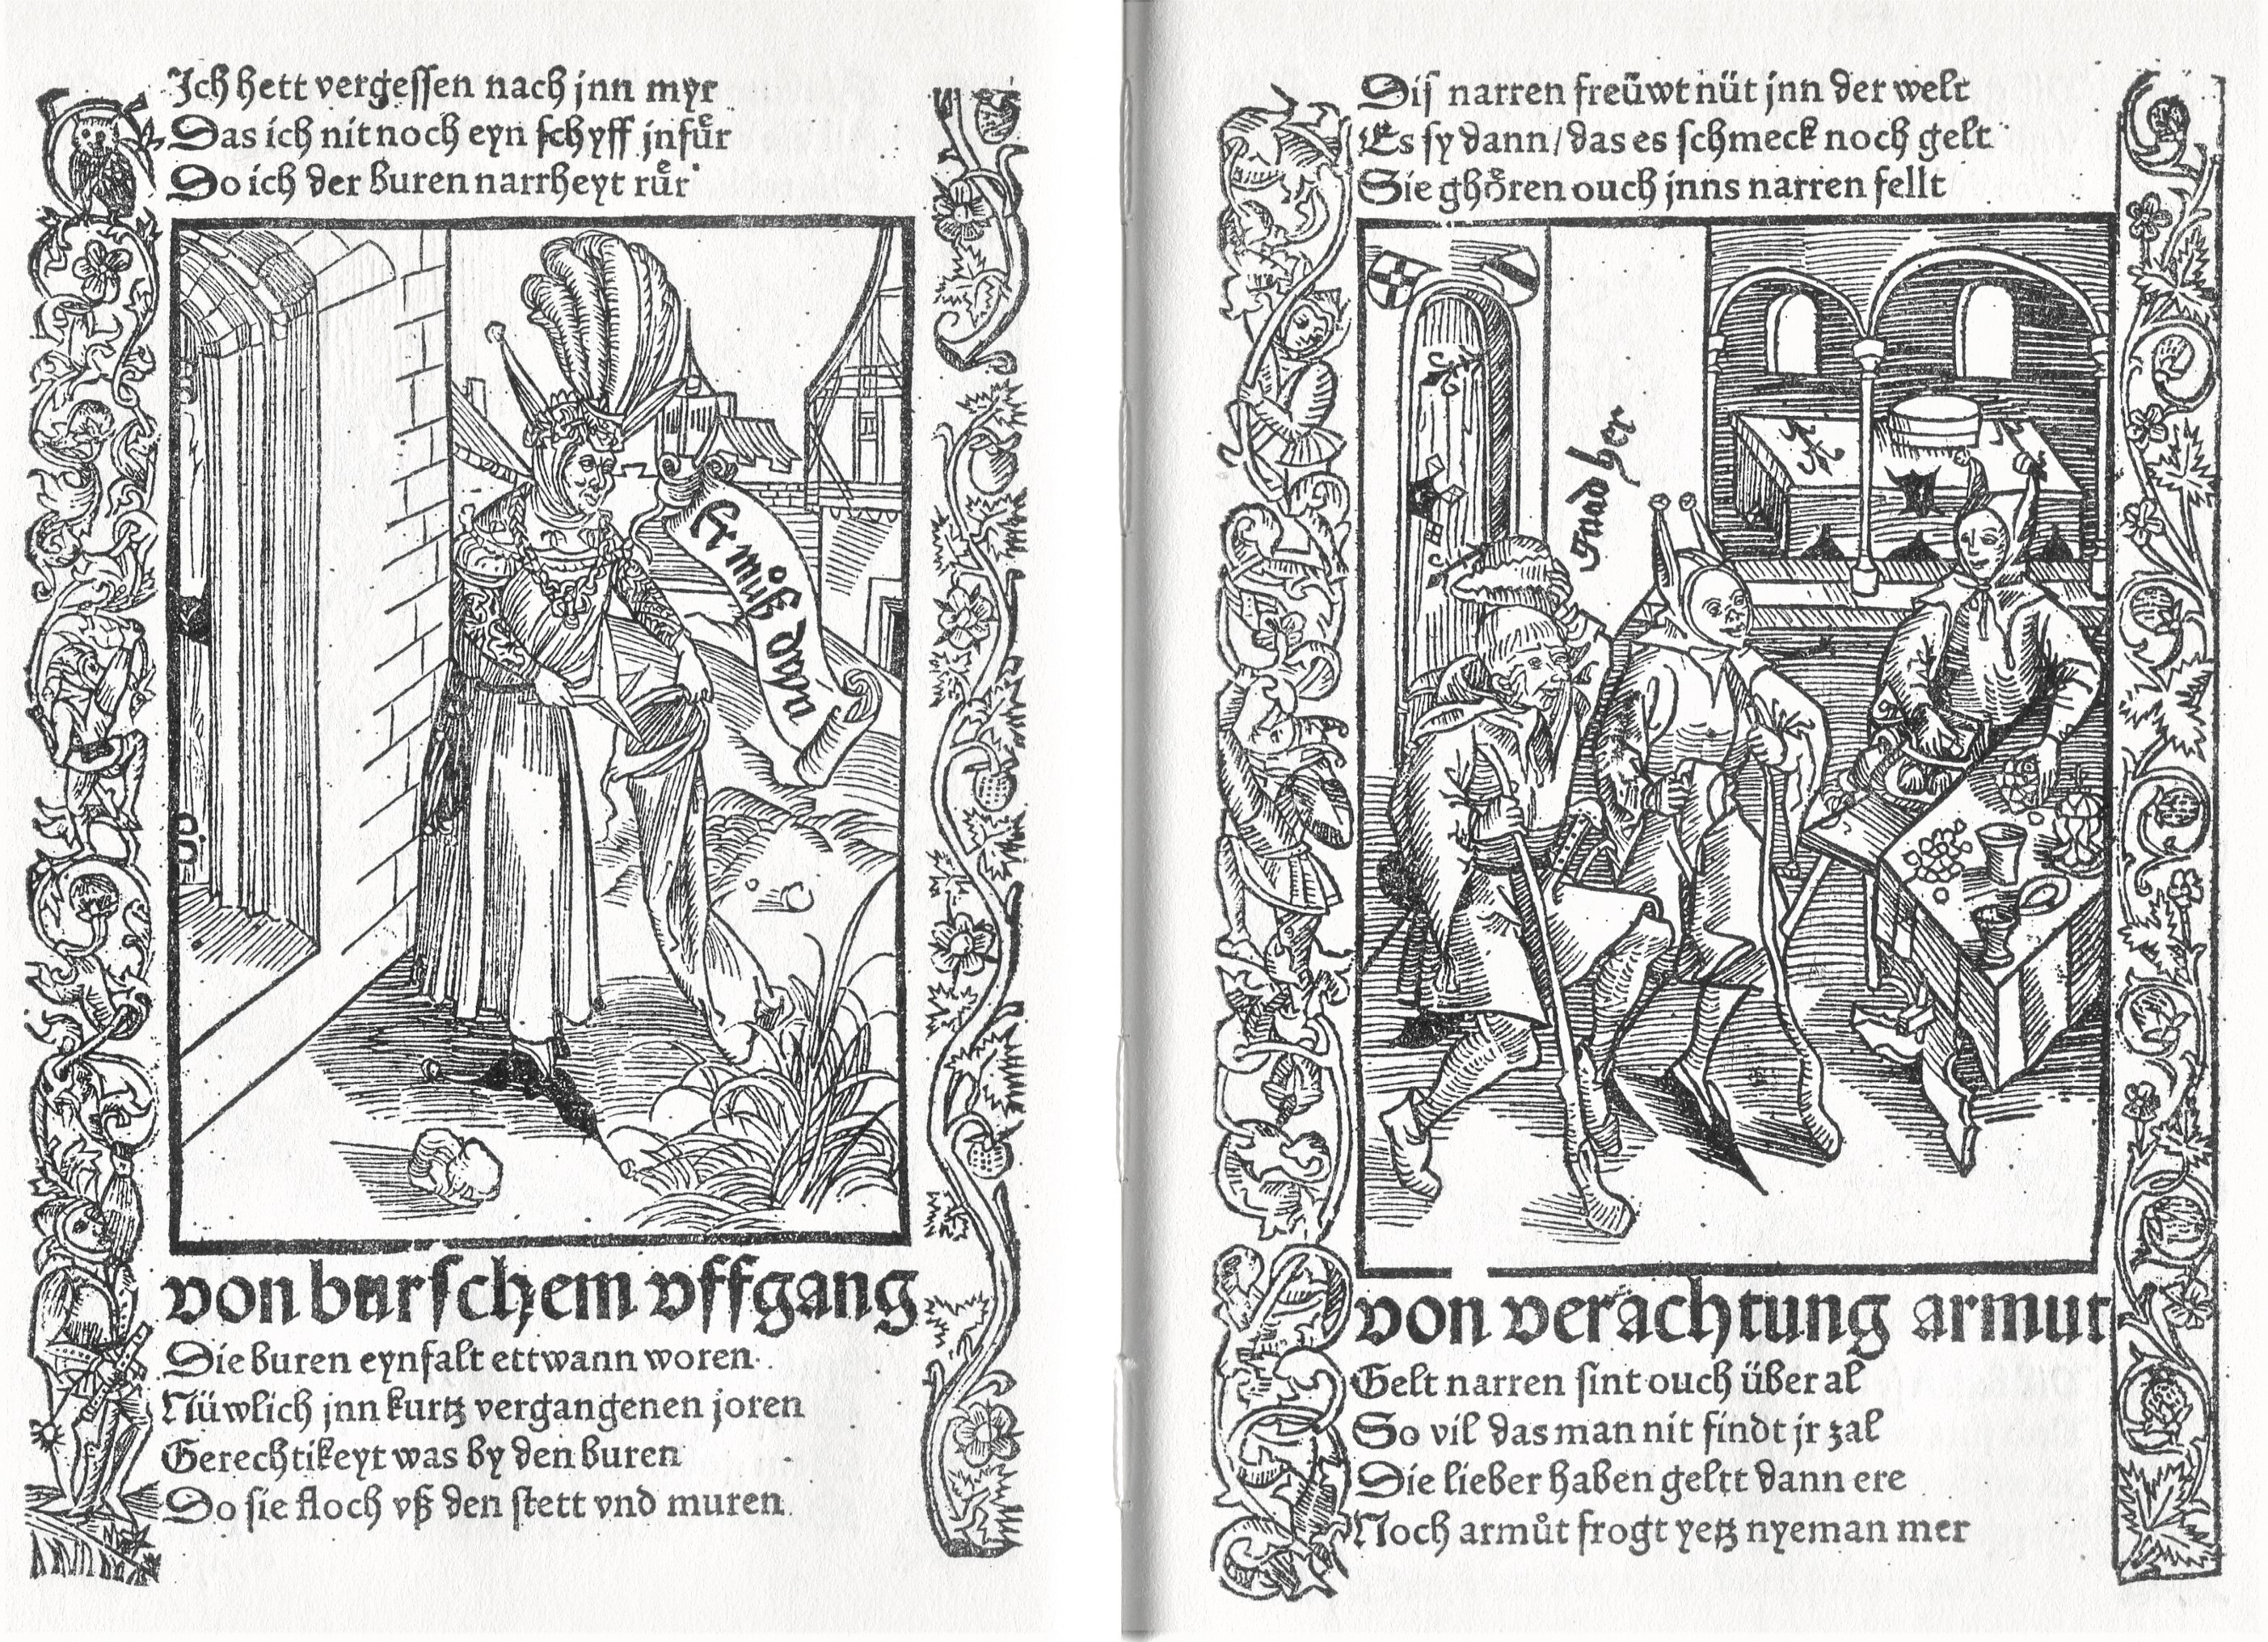 Ich hett vergessen nach jnn myr
Das ich nit noch eyn schyff jnfuͤr
Do ich der buren narrheyt ruͤr
Er muͦß dran
von burschem vffgang
Die buren eynfalt ettwann woren
Nüwlich jnn kurtz vergangenen joren
Gerechtikeyt was by den buren
Do sie floch vß den stett vnd muren
Dis narren freüwt nüt jnn der welt
Es sy dann / das es schmeck noch gelt
Sie ghoͤren ouch jnns narren fellt
Gnad her
von verachtung armut
Gelt narren sint ouch über al
So vil das man nit findt jr zal
Die lieber haben geltt dann ere
Noch armuͦt frogt yetz nyeman mer